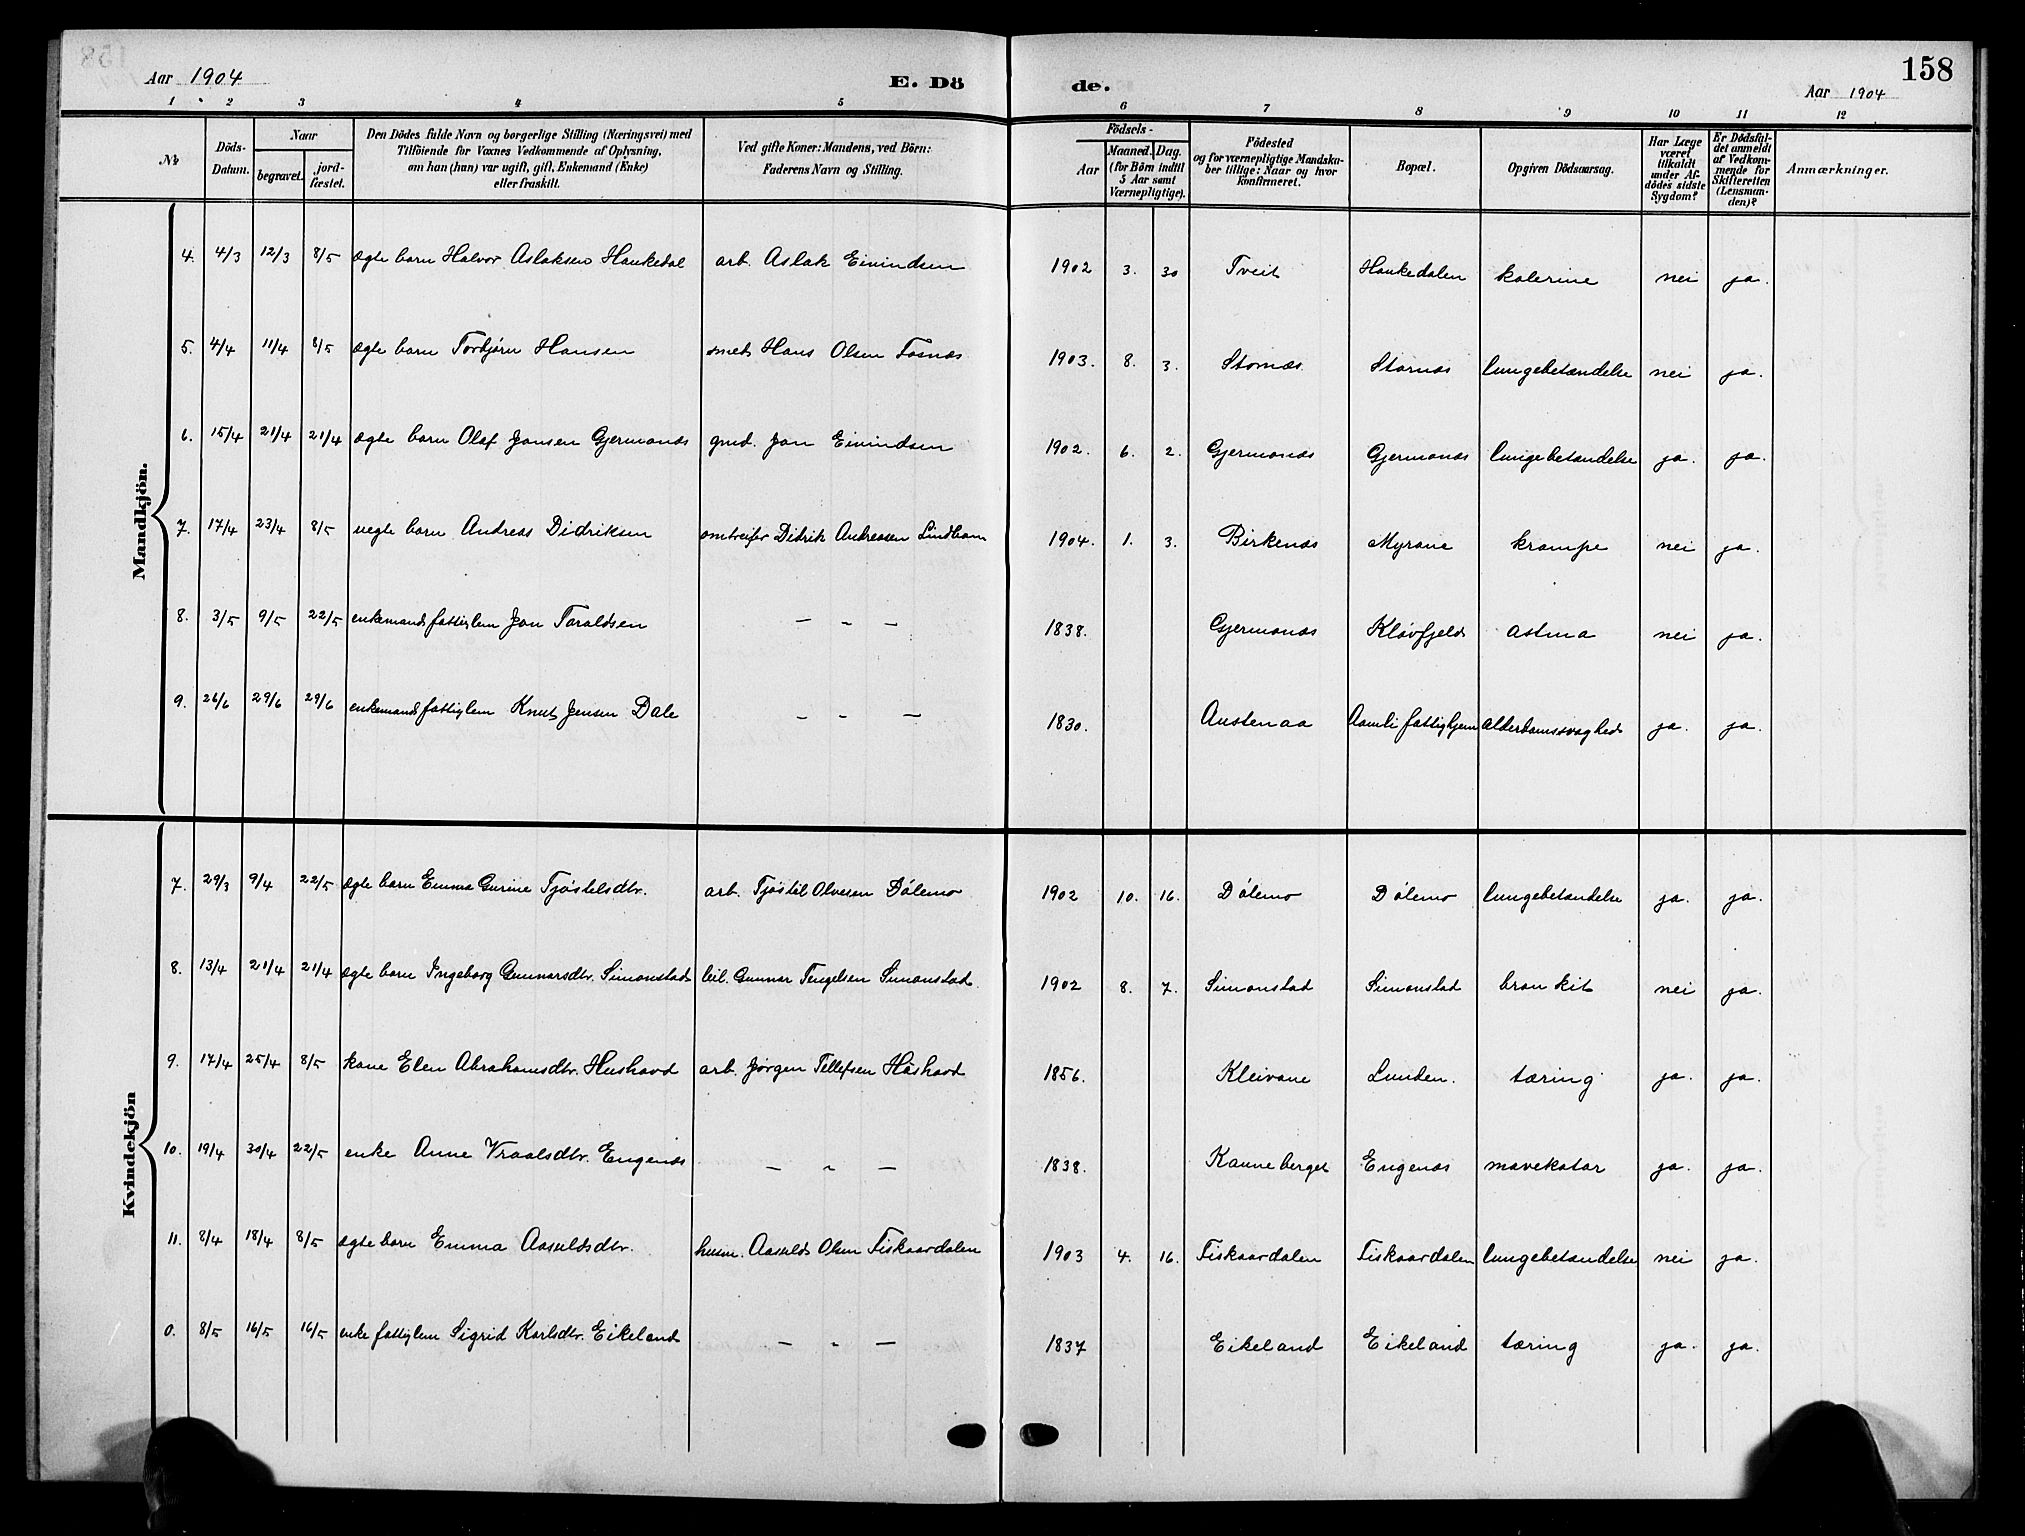 158
Aar 1904
E. Dö de.
Aar 1904
1 2 3 4 5 6 7 8 9 10 11 12
No
Döds-Datum.
Naar
begravet.
jord-fæstet.
Den Dödes fulde Navn og borgerlige Stilling (Næringsvei) med
Tilföiende for Voxnes Vedkommende af Oplysning,
om han (hun) var ugift, gift, Enkemand (Enke)
eller fraskilt.
Ved gifte Koner: Mandens, ved Börn:
Faderens Navn og Stilling.
Födsels-
Aar
Maaned. Dag.
(for Börn indtil
5 Aar samt
Værnepligtige).
Födested
og for værnepligtige Mandska-
ber tillige: Naar og hvor
konfirmeret.
Bopæl.
Opgiven Dödsaarsag.
Har Læge
været
tilkaldt
under Af-
dödes sidste
Sygdom?
Er Dödsfal-
det anmeldt
af Vedkom-
mende for
Skifteretten
(Lensman-
den)?
Anmærkninger.
Mandkjön.
4. 4/3 12/3 8/5 ægte barn Halvor Aslaksen Haukedal arb. Aslak Eivindsen 1902 3. 30 Tveit Haukedalen kolerine nei ja.
5. 4/4 11/4 8/5 ægte barn Torbjørn Hansen smed Hans Olsen 1903. 8. 3. Stornæs Stornæs lungebetændelse nei ja.
6. 15/4 21/4 21/4 ægte barn Olaf Jonsen Gjermonæs gmd. Jon Eivindsen 1902. 6. 2. Gjermonæs Gjermonæs lungebetændelse ja. ja.
7. 17/4 23/4 8/5 uegte barn Andreas Didriksen omtreifer Didrik Andreasen 1904. 1. 3. Birkenæs Myrane krampe nei ja.
8. 3/5 9/5 22/5 enkemand fattiglem Jon Taraldsen — „ — 1838. Gjermonæs Kløvfjeld astma nei ja.
9. 26/6 29/6 29/6 enkemand fattiglem Knut Jensen Dale — „ — 1830. Austenaa Aamli fattighjem alderdomssvaghed ja. ja.
Kvindekjön
7. 29/3 9/4 22/5 ægte barn Emma Gurine Tjøstelsdtr. arb. Tjøstil Olvesen Dølemo 1902 10. 16. Dølemo Dølemo lungebetændelse ja. ja.
8. 13/4 21/4 21/4 ægte barn Ingeborg Gunnarsdtr. Simonstad leil. Gunnar Tengelsen Simonstad. 1902 8. 7. Simonstad Simonstad bronkit nei ja.
9. 17/4 25/4 8/5 kone Elen Abrahamsdtr. Hushovd arb. Jørgen Tellefsen Håshovd 1856. Kleivane Lunden. tæring ja. ja.
10. 19/4 30/4 22/5 enke Anne Vraalsdtr. Engenæs — „ — 1838. Kanneberget Engenæs mavekatar ja. ja.
11. 8/4 18/4 8/5 ægte barn Emma Aasuldsdtr. husm. Aasuld Olsen Fiskaardalen 1903 4. 16. Fiskaardalen Fiskaardalen lungebetændelse nei ja.
0. 8/5 16/5 16/5 enke fattiglem Sigrid Karlsdtr. Eikeland — „ — 1837 Eikeland Eikeland tæring ja. ja.